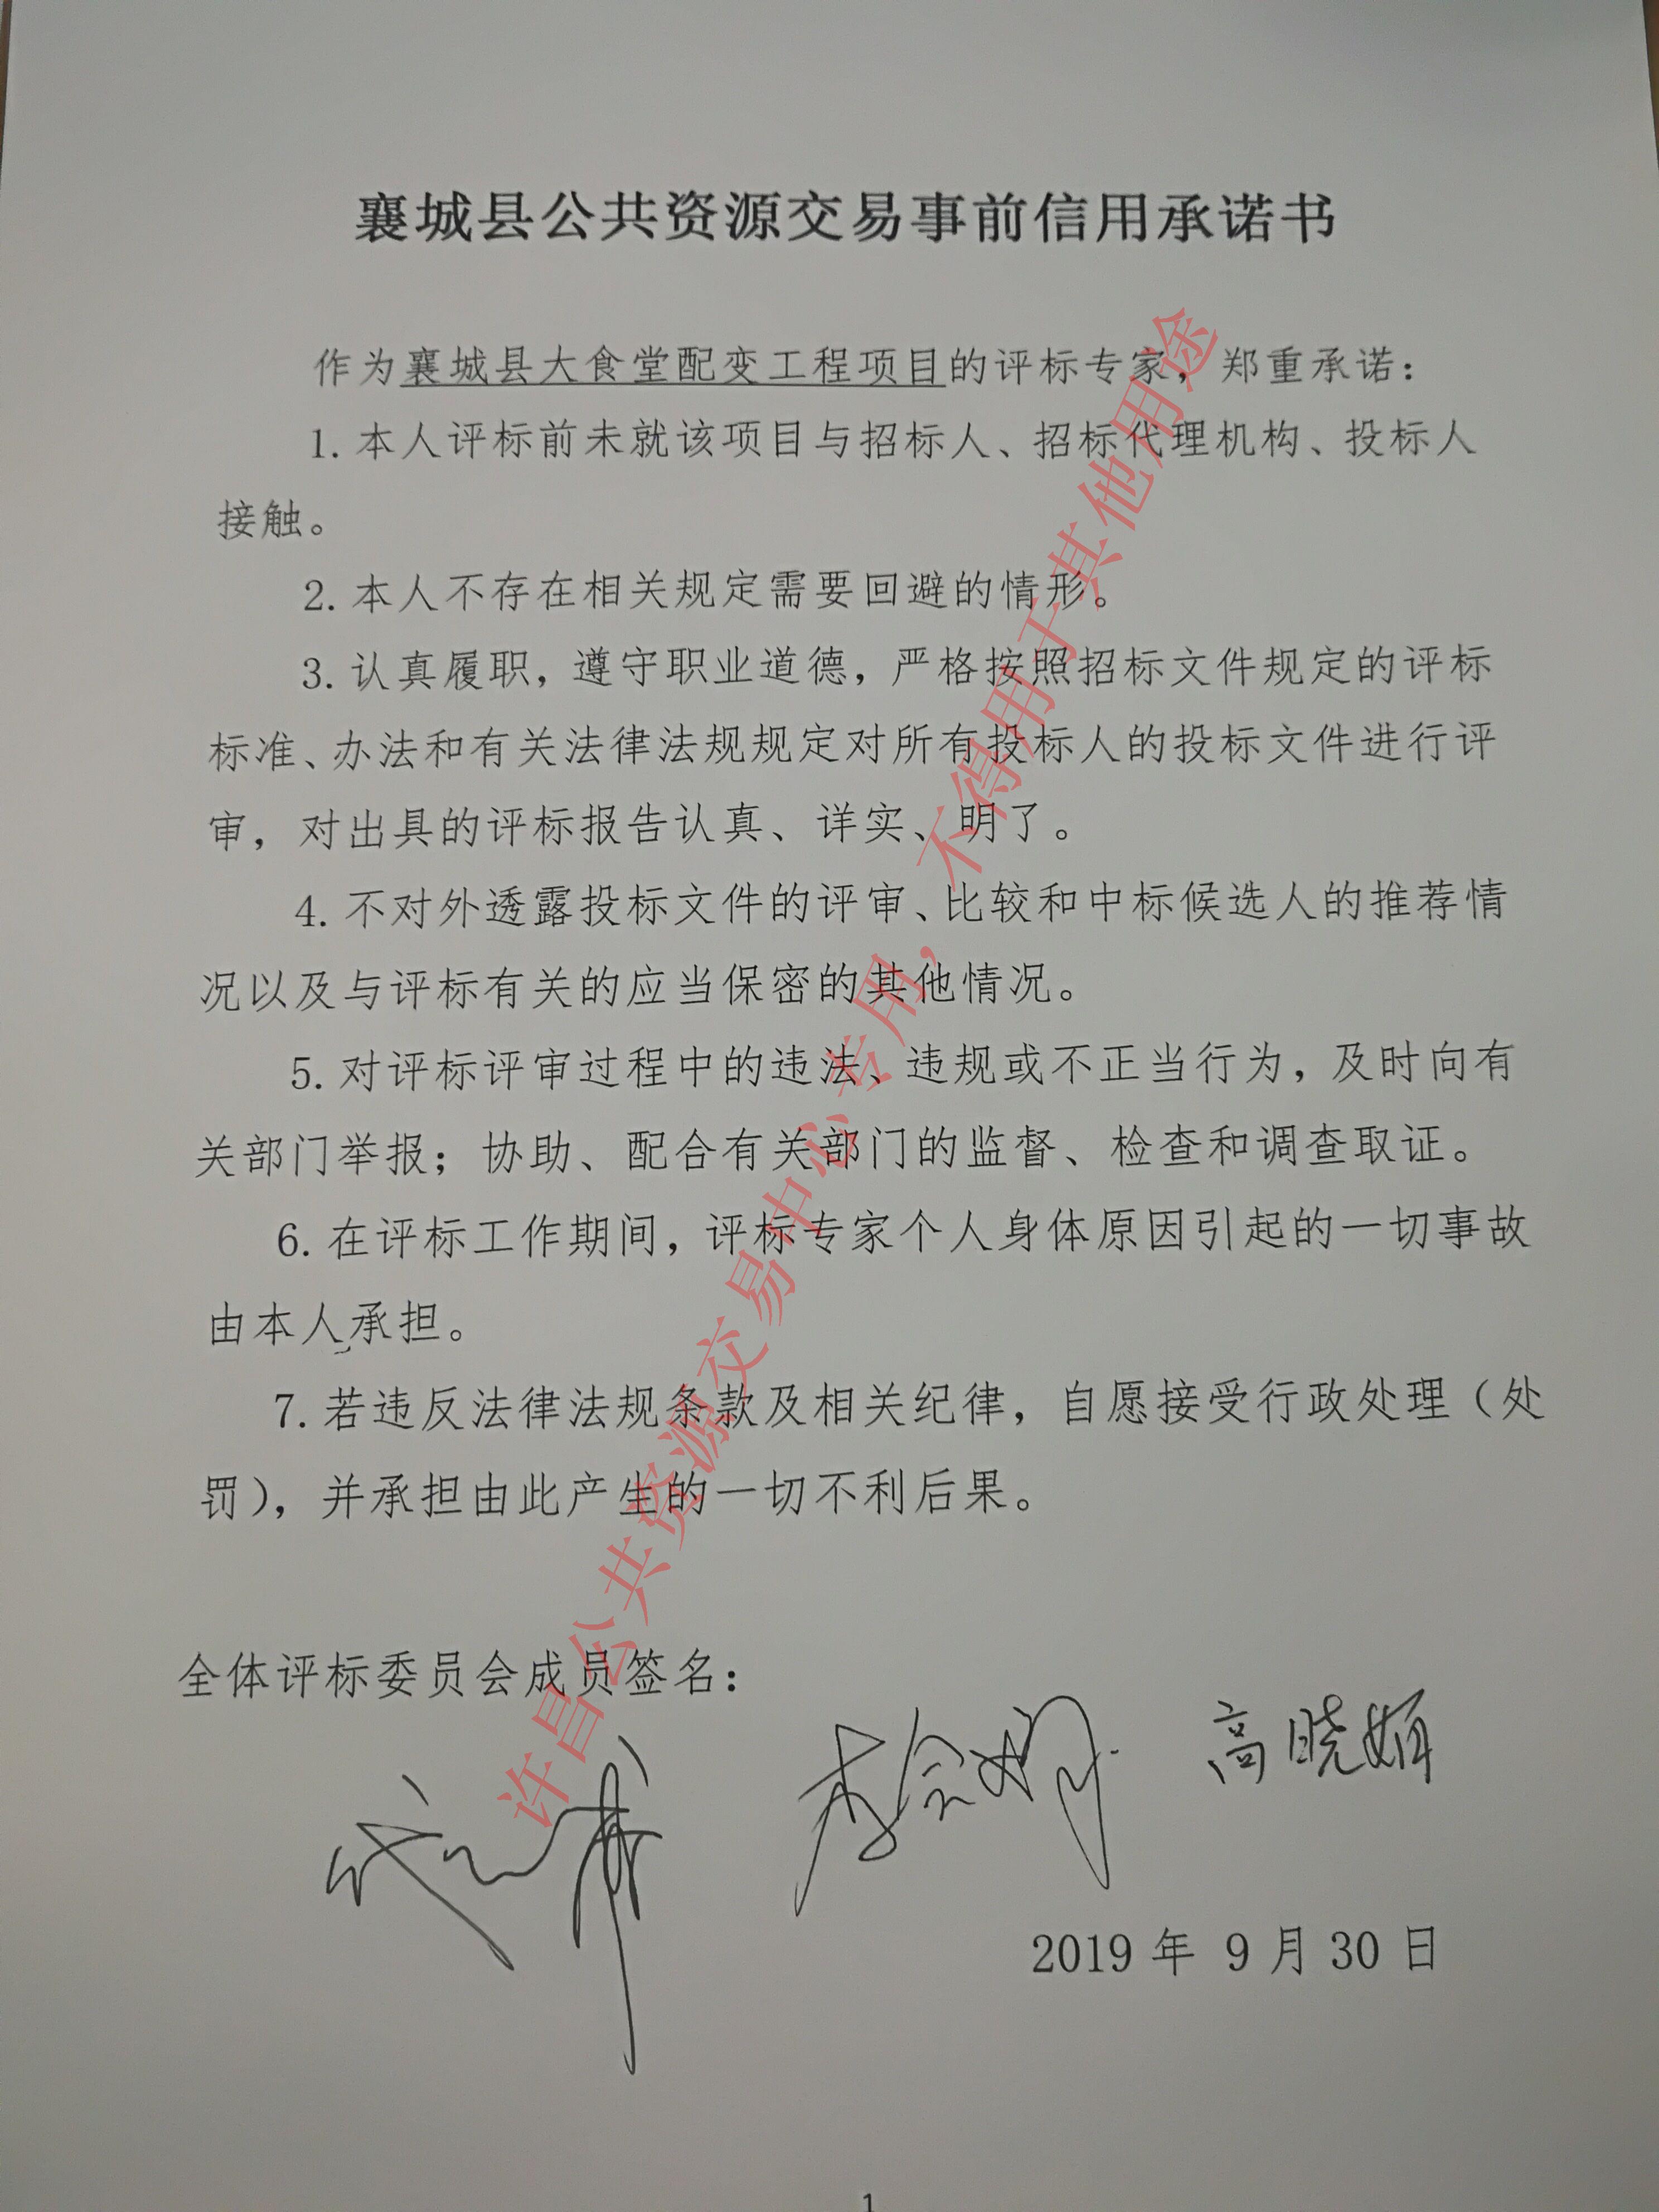 襄城县公共资源交易事前信用承诺书
作为襄城县大食堂配变工程项目的评标专家，郑重承诺：
1.本人评标前未就该项目与招标人、招标代理机构、投标人
接触。
2.本人不存在相关规定需要回避的情形。
3.认真履职，遵守职业道德，严格按照招标文件规定的评标
标准、办法和有关法律法规规定对所有投标人的投标文件进行评
审，对出具的评标报告认真、详实、明了。
4.不对外透露投标文件的评审、比较和中标候选人的推荐情
况以及与评标有关的应当保密的其他情况。
5.对评标评审过程中的违法、违规或不正当行为，及时向有
关部门举报；协助、配合有关部门的监督、检查和调查取证。
6.在评标工作期间，评标专家个人身体原因引起的一切事故
由本人承担。
7.若违反法律法规条款及相关纪律，自愿接受行政处理（处
罚），并承担由此产生的一切不利后果。
全体评标委员会成员签名：
高晓娟
2019年 9月30日
1
许昌公共资源交易中心专用，不得用于其他用途